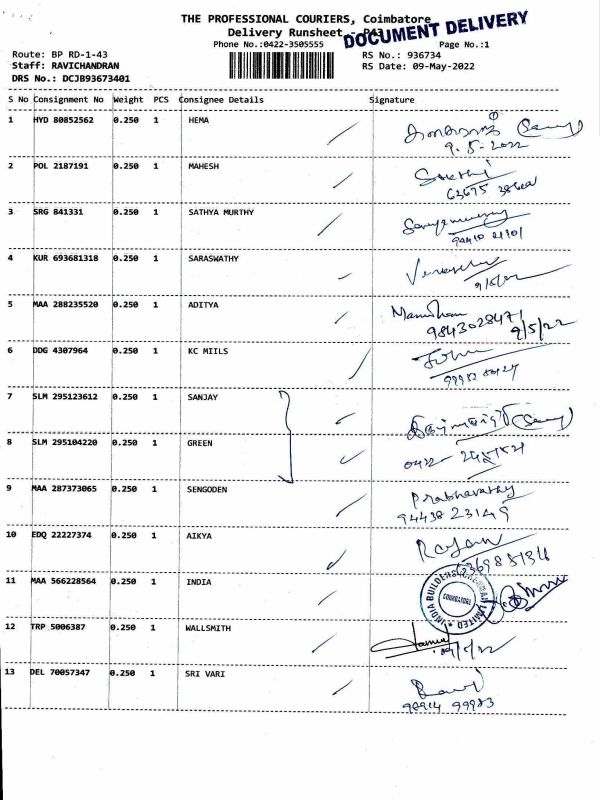 THE PROFESSIONAL COURIERS, Coimbatore
Delivery Runsheet - P43
DOCUMENT DELIVERY
Phone No.:0422-3505555 Page No.:1
Route: BP RD-1-43 RS No.: 936734
Staff: RAVICHANDRAN RS Date: 09-May-2022
DRS No.: DCJB93673401
S No Consignment No Weight PCS Consignee Details Signature
1 HYD 80852562 0.250 1 HEMA
9.5.2022
2 POL 2187191 0.250 1 MAHESH
Sakthi
63695
3 SRG 841331 0.250 1 SATHYA MURTHY
4 KUR 693681318 0.250 1 SARASWATHY
9/5/22
5 MAA 288235520 0.250 1 ADITYA
9843028471
9/5/22
6 DDG 4307964 0.250 1 KC MIILS
7 SLM 295123612 0.250 1 SANJAY
8 SLM 295104220 0.250 1 GREEN
0422-
9 MAA 287373065 0.250 1 SENGODEN
Prabhavathy
94438 23149
10 EDQ 22227374 0.250 1 AIKYA
Rajan
11 MAA 566228564 0.250 1 INDIA
INDIA BUILDERS LIMITED
COIMBATORE
12 TRP 5006387 0.250 1 WALLSMITH
13 DEL 70057347 0.250 1 SRI VARI
99983